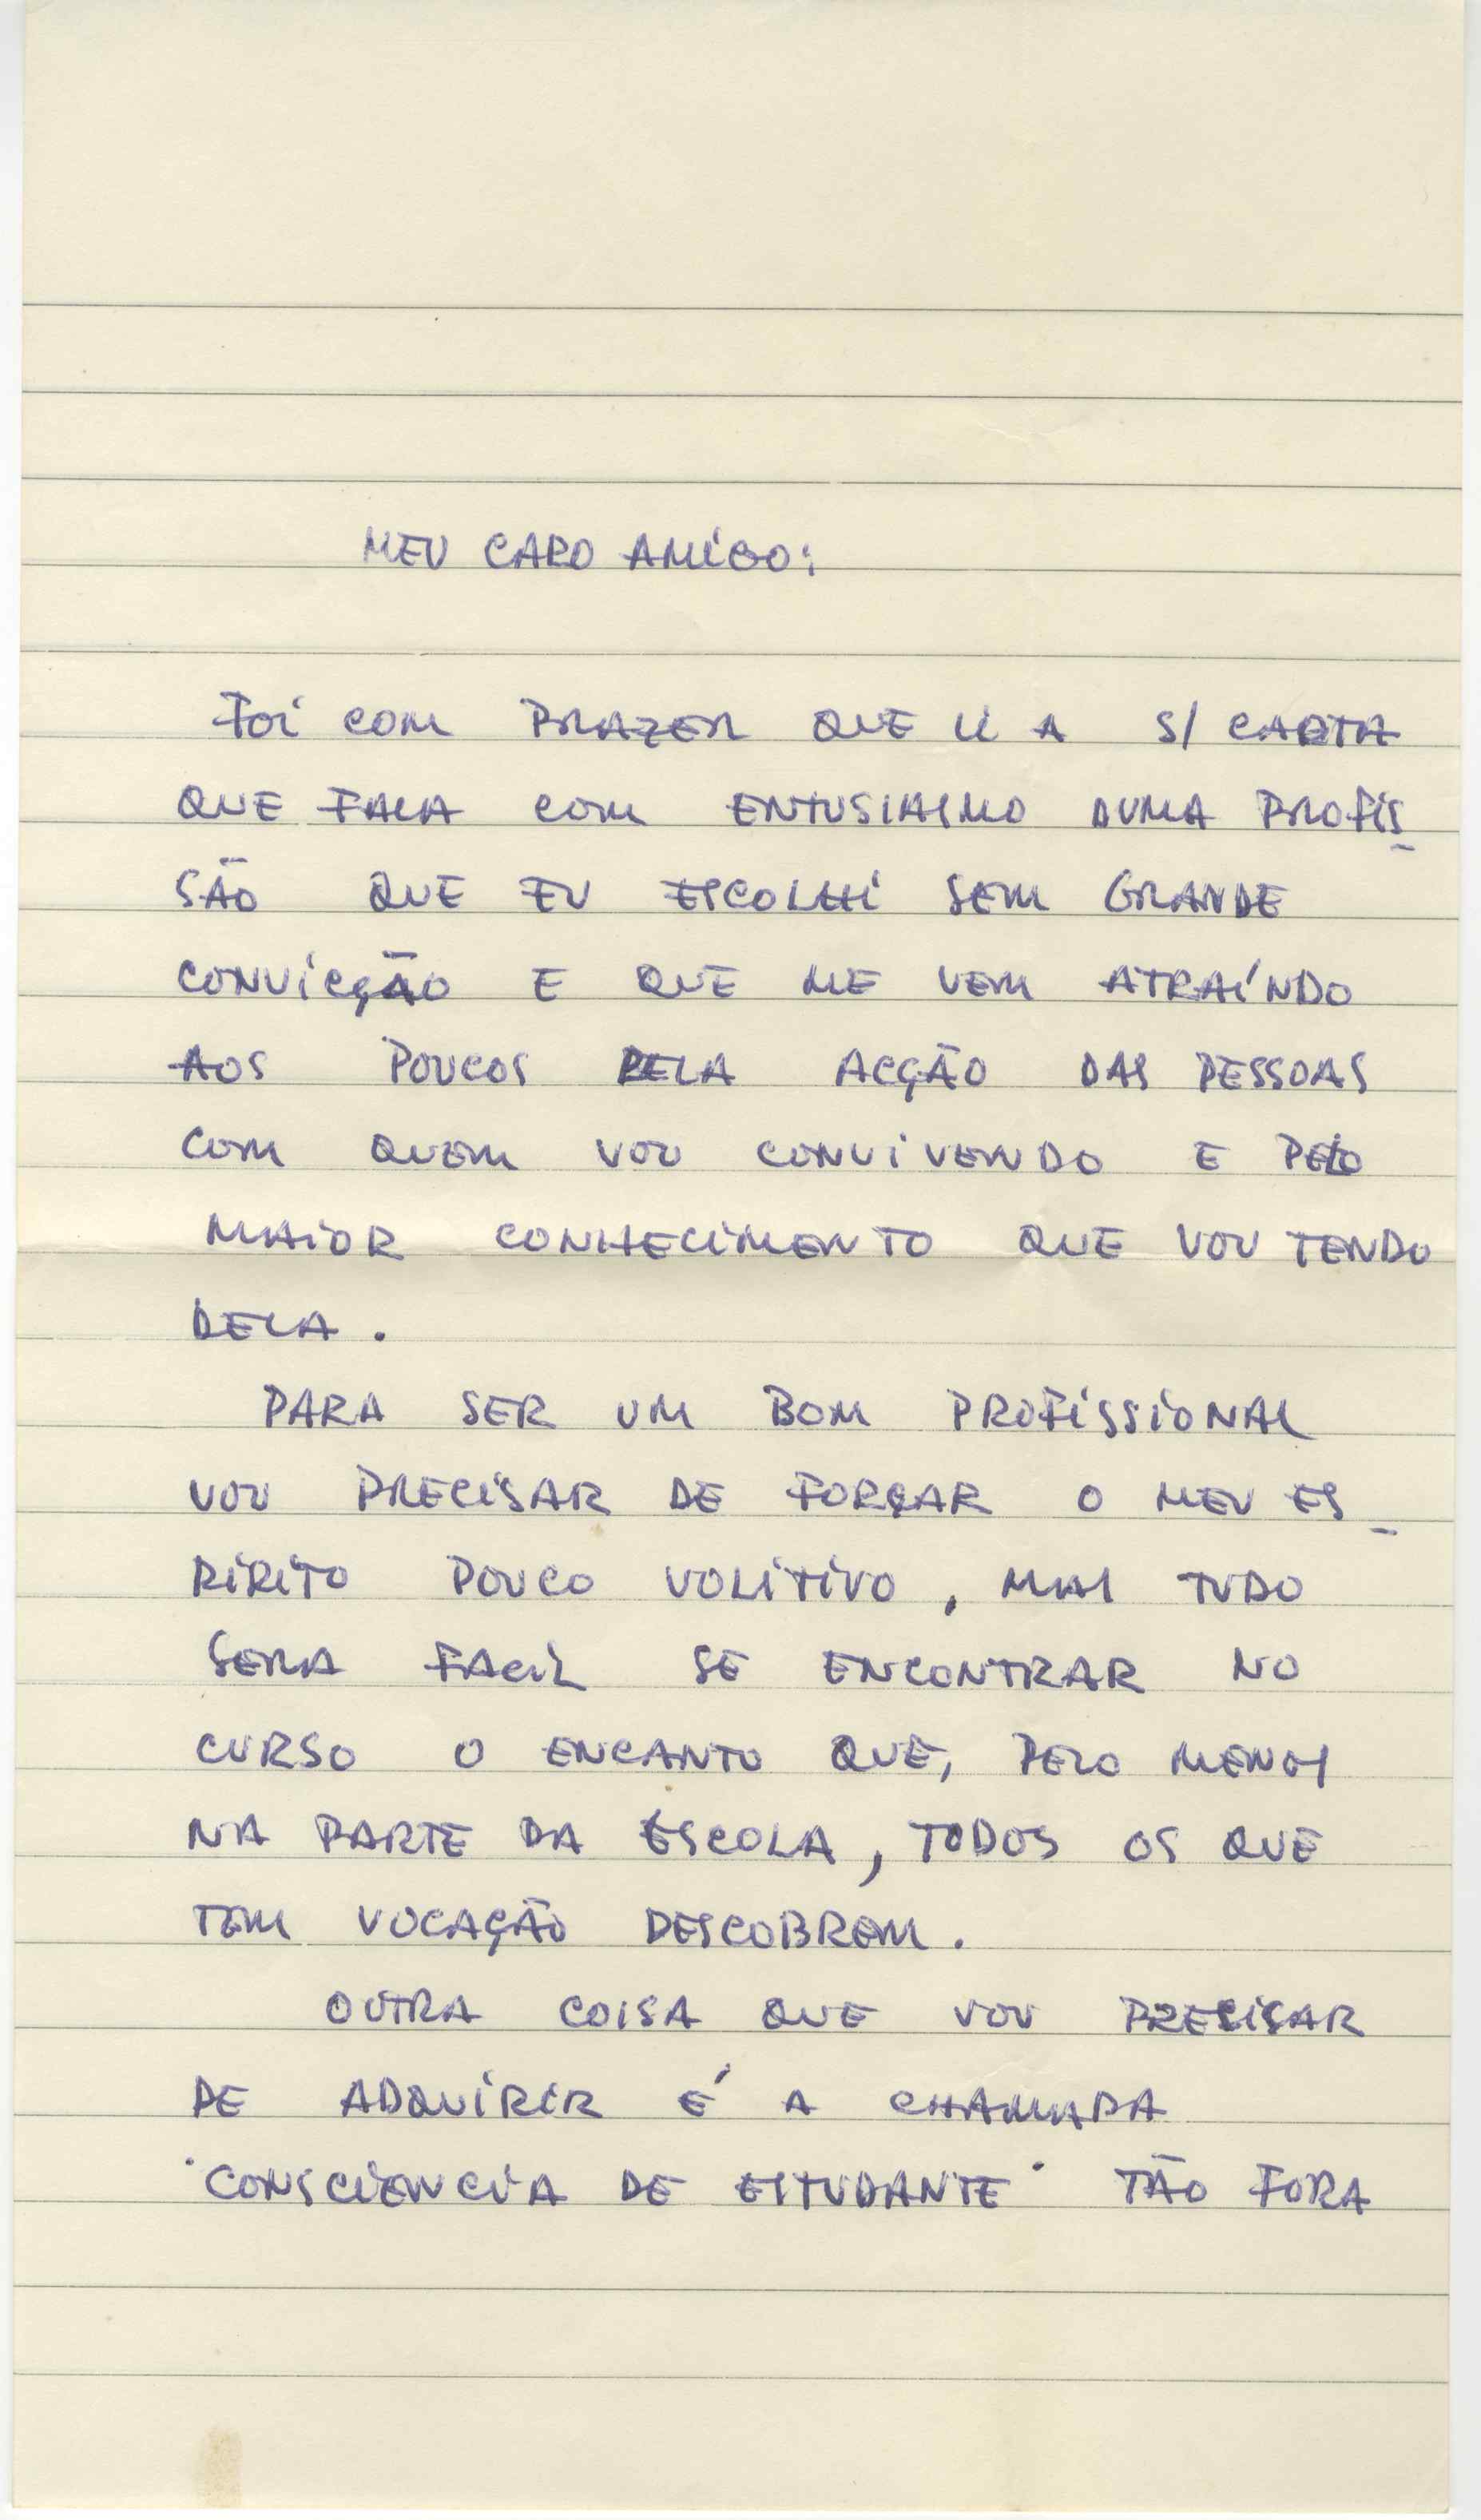 MEU CARO AMIGO:
FOI COM PRAZER QUE LI A S/ CARTA
QUE FALA COM ENTUSIASMO DUMA PROFIS-
SÃO QUE EU ESCOLHI SEM GRANDE
CONVICÇÃO E QUE ME VEM ATRAÍNDO
AOS POUCOS PELA ACÇÃO DAS PESSOAS
COM QUEM VOU CONVIVENDO E PELO
MAIOR CONHECIMENTO QUE VOU TENDO
DELA.
PARA SER UM BOM PROFISSIONAL
VOU PRECISAR DE FORÇAR O MEU ES-
PIRITO POUCO VOLITIVO, MAS TUDO
SERA FACIL SE ENCONTRAR NO
CURSO O ENCANTO QUE, PELO MENOS
NA PARTE DA ESCOLA, TODOS OS QUE
TEM VOCAÇÃO DESCOBREM.
OUTRA COISA QUE VOU PRECISAR
DE ADQUIRIR É A CHAMADA
"CONSCIENCIA DE ESTUDANTE" TÃO FORA